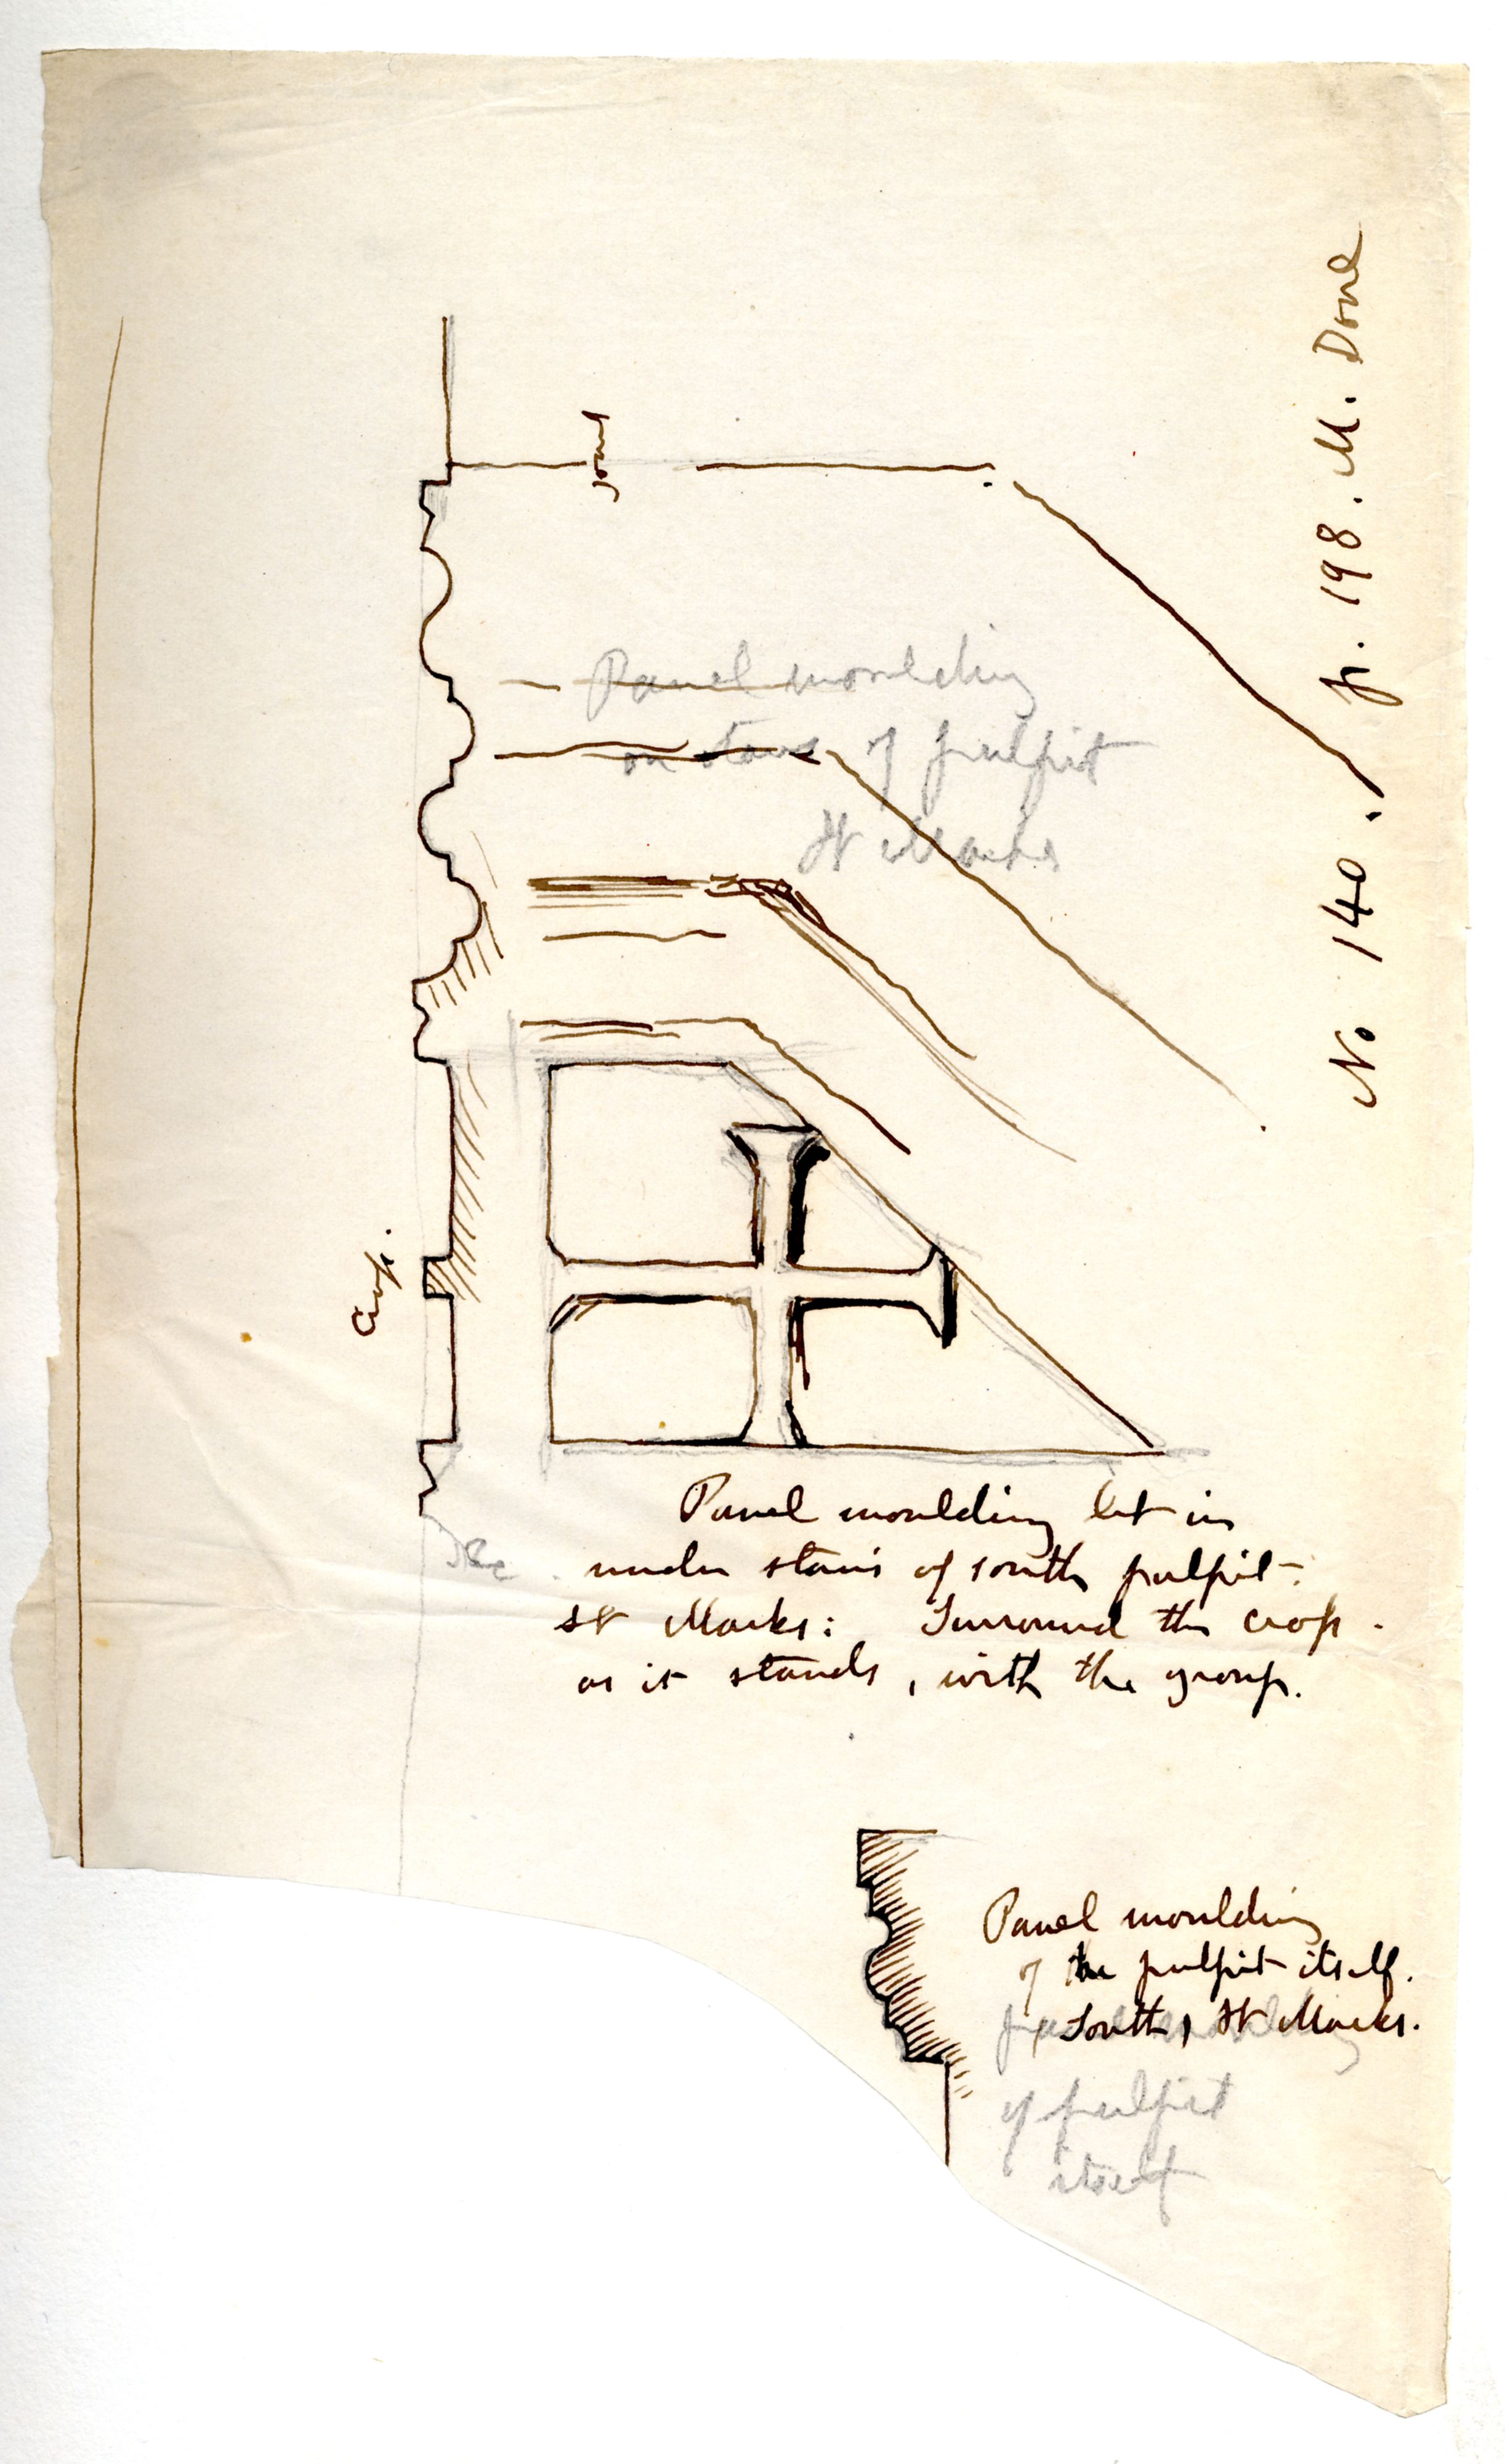 No 140. p. 198. M. Done
Joint
Panel moulding
on stairs of pulpit
St Marks
Crofs.
&c
Panel moulding let in
under stairs of south pulpit.
St Marks: Surround the crofs.
as it stands, with the group.
Panel moulding
of the pulpit itself.
South, St Marks.
panel moulding
of pulpit
itself